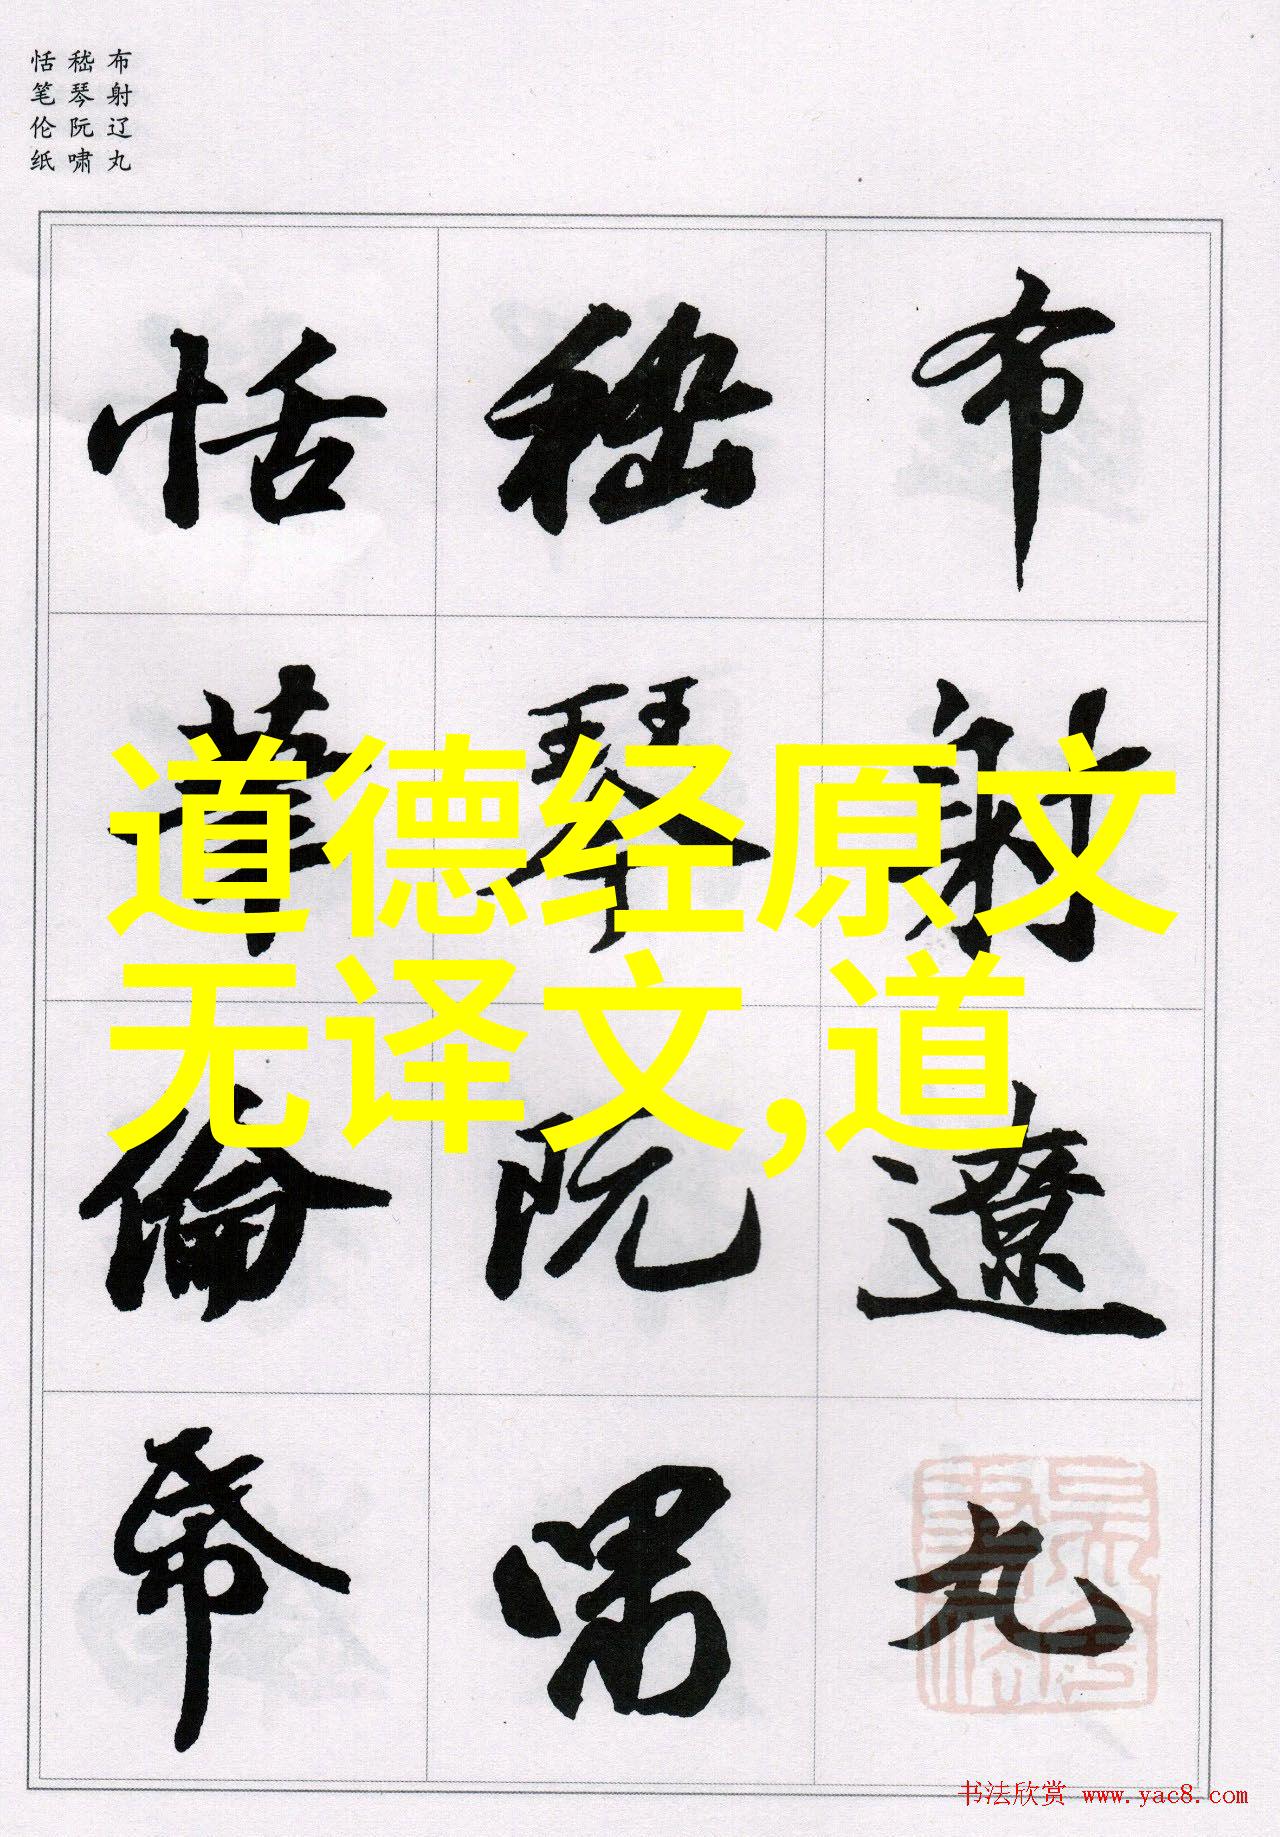 布射辽丸
嵇琴阮啸
恬笔伦纸
布射遼丸
嵇琴阮嘯
恬筆倫帋
道德经原文
无译文,道
书法欣赏 www.yac8.com